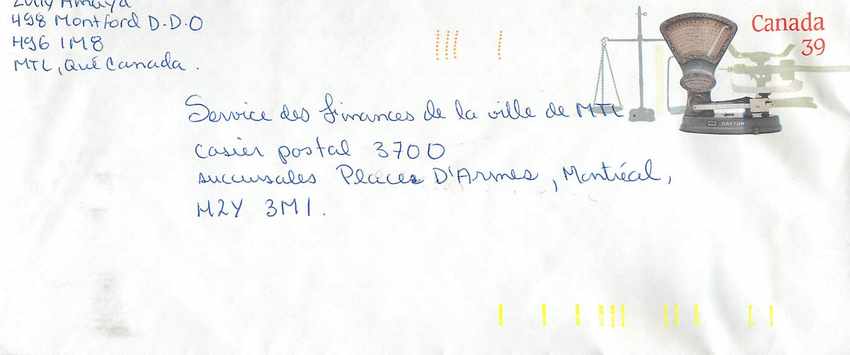 Zully Amaya
498 Montford D.D.O
H9G 1M8
MTL, Qué Canada.
Canada
39
Service des finances de la ville de MTL
casier postal 3700
succursales Place D'Armes, Montréal,
H2Y 3M1.
DAYTON